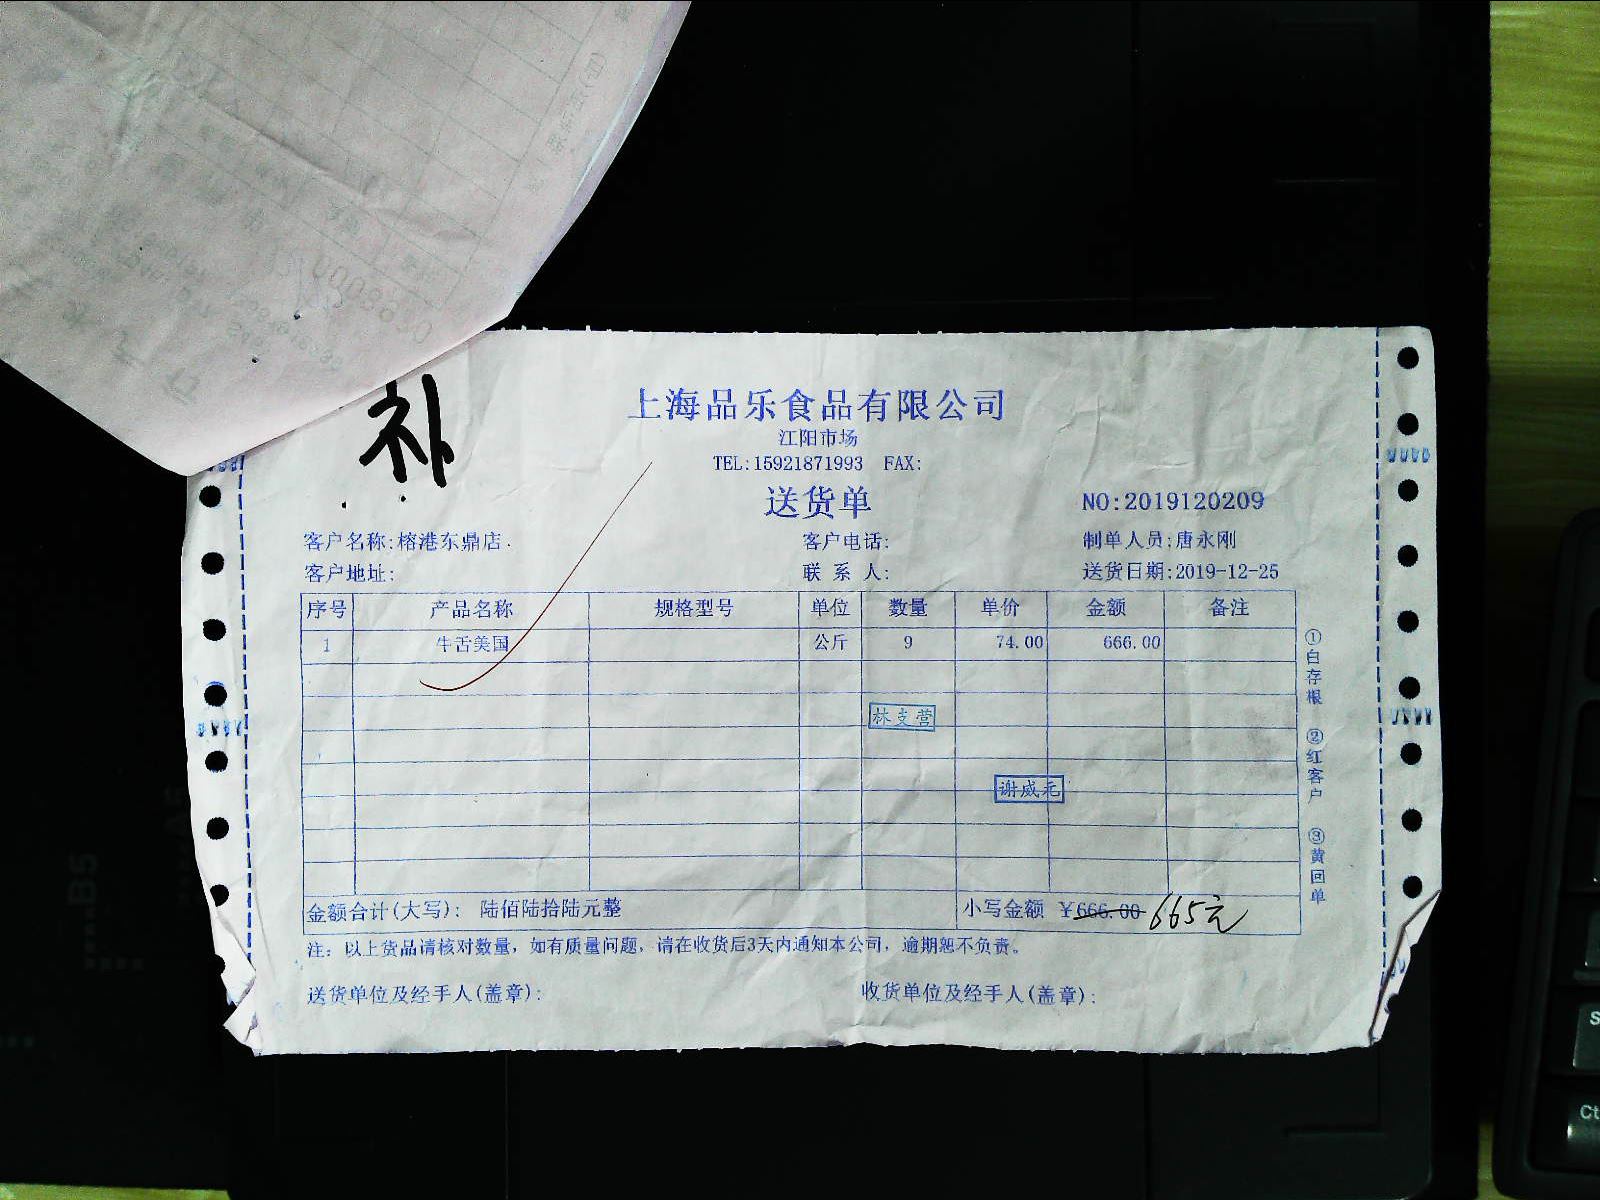 补
上海品乐食品有限公司
江阳市场
TEL:15921871993 FAX:
送货单
NO:2019120209
客户名称:榕港东鼎店. 客户电话: 制单人员:唐永刚
客户地址: 联 系 人: 送货日期:2019-12-25
序号 产品名称 规格型号 单位 数量 单价 金额 备注
1 牛舌美国 公斤 9 74.00 666.00
林支营
谢威元
①白存根 ②红客户 ③黄回单
金额合计(大写): 陆佰陆拾陆元整 小写金额 ¥666.00 665元
注: 以上货品请核对数量, 如有质量问题, 请在收货后3天内通知本公司, 逾期恕不负责。
送货单位及经手人(盖章): 收货单位及经手人(盖章):
B5